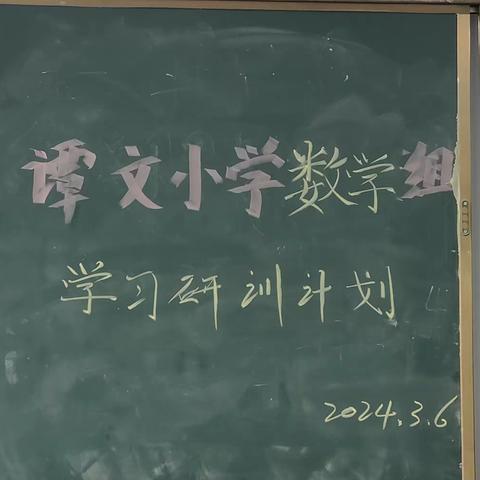 谭文小学数学组
学习研训计划
2024.3.6